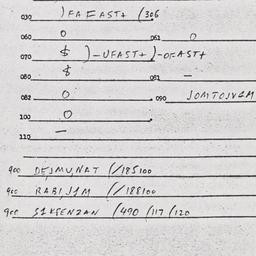 030 )FAEAST+ (306
060 0 061 0
070 $ )-UFAST+)-OFAST+
080 $ 081 -
082 0 090 JOMTOJVGM
100 0
110 -
900 DEJMUNAT (/185100
900 RABIJIM (/188100
900 SIKSENZAN (490 (117 (120